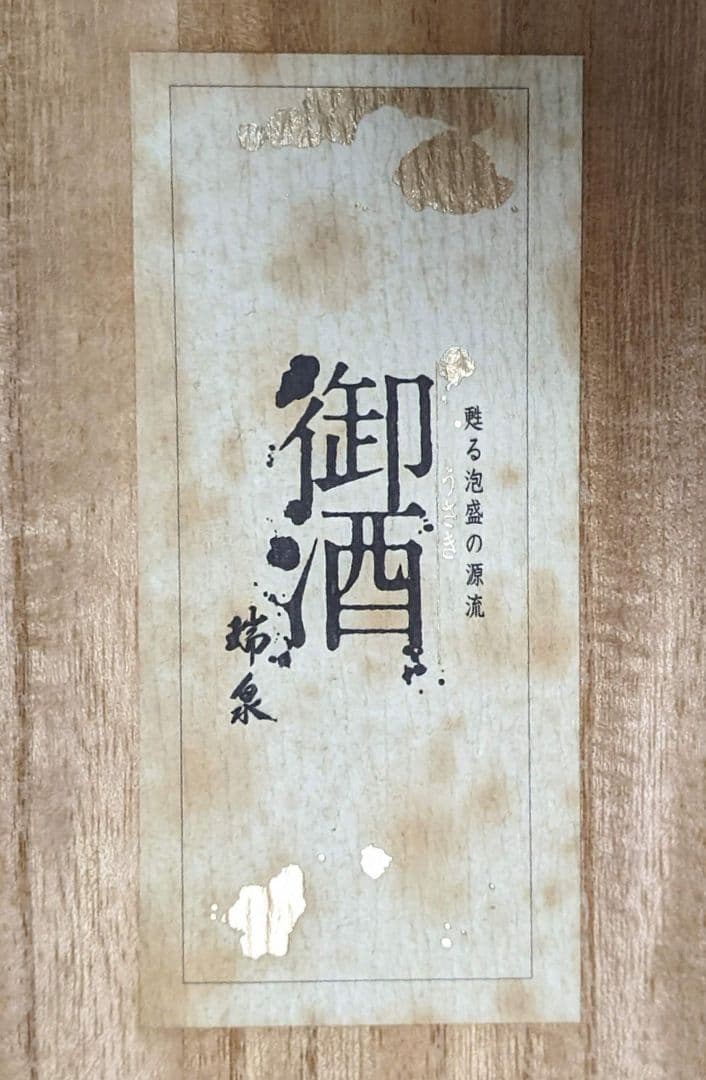 甦る泡盛の源流
うさき
御酒
瑞泉